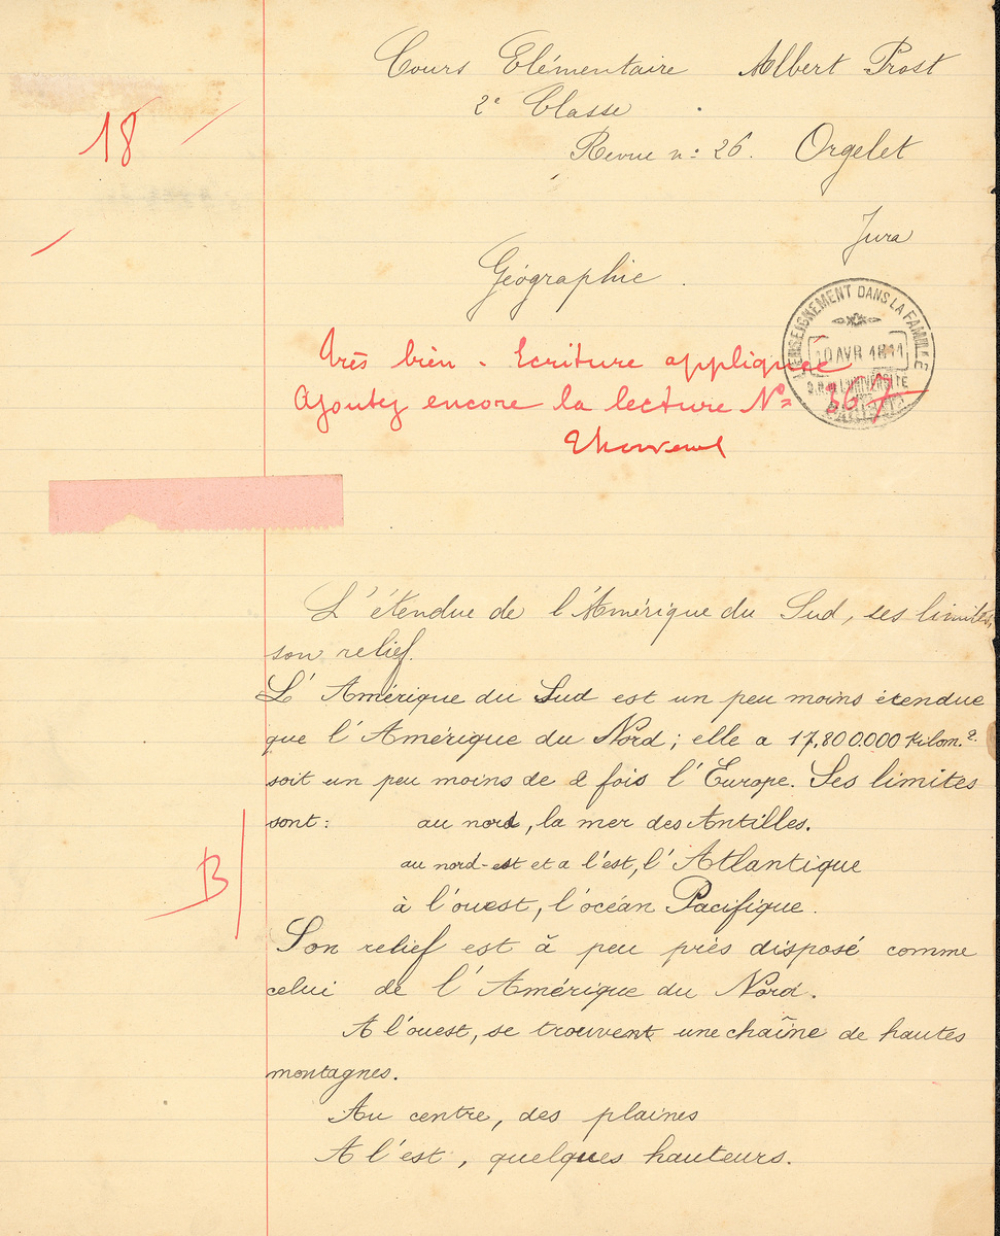 Cours Elémentaire Albert Prost
2e Classe
Revue n: 26. Orgelet
18
Jura
Géographie.
L'ENSEIGNEMENT DANS LA FAMILLE
10 AVR
L'UNIVERSITÉ
PARIS
Très bien - Ecriture appliquée
Ajoutez encore la lecture No 367
L'étendue de l'Amérique du Sud, ses limites,
son relief.
L'Amérique du Sud est un peu moins étendue
que l'Amérique du Nord; elle a 17,800.000 Kilom.2
soit un peu moins de 2 fois l'Europe. Ses limites
sont: au nord, la mer des Antilles.
au nord-est et a l'est, l'Atlantique
B
à l'ouest, l'océan Pacifique.
Son relief est à peu près disposé comme
celui de l'Amérique du Nord.
A l'ouest, se trouvent une chaîne de hautes
montagnes.
Au centre, des plaines
A l'est, quelques hauteurs.